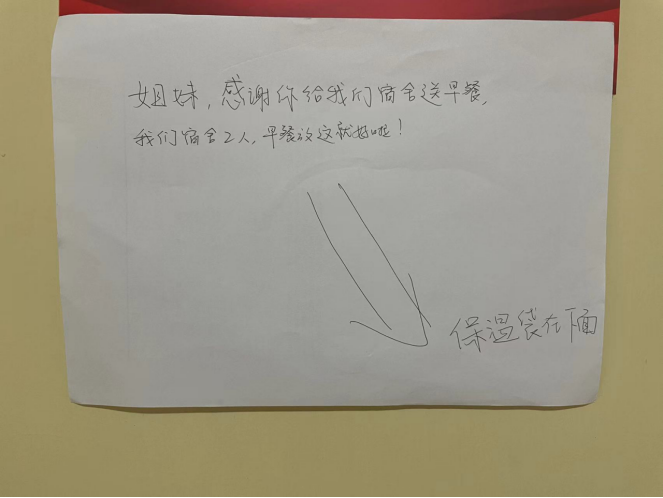 姐妹，感谢你给我们宿舍送早餐，
我们宿舍2人，早餐放这就好啦！
保温袋在下面